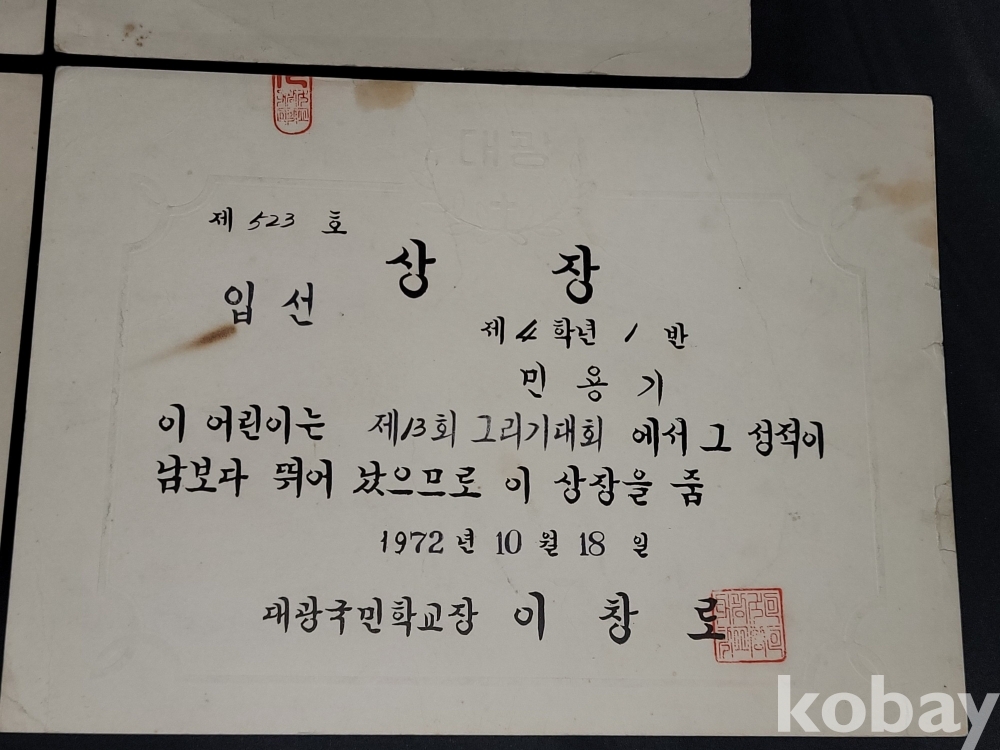 제 523 호
상 장
입 선
제 4 학년 1 반
민 용 기
이 어린이는 제13회 그리기대회 에서 그 성적이
남보다 뛰어 났으므로 이 상장을 줌
1972 년 10 월 18 일
대광국민학교장 이 창 로
kobay